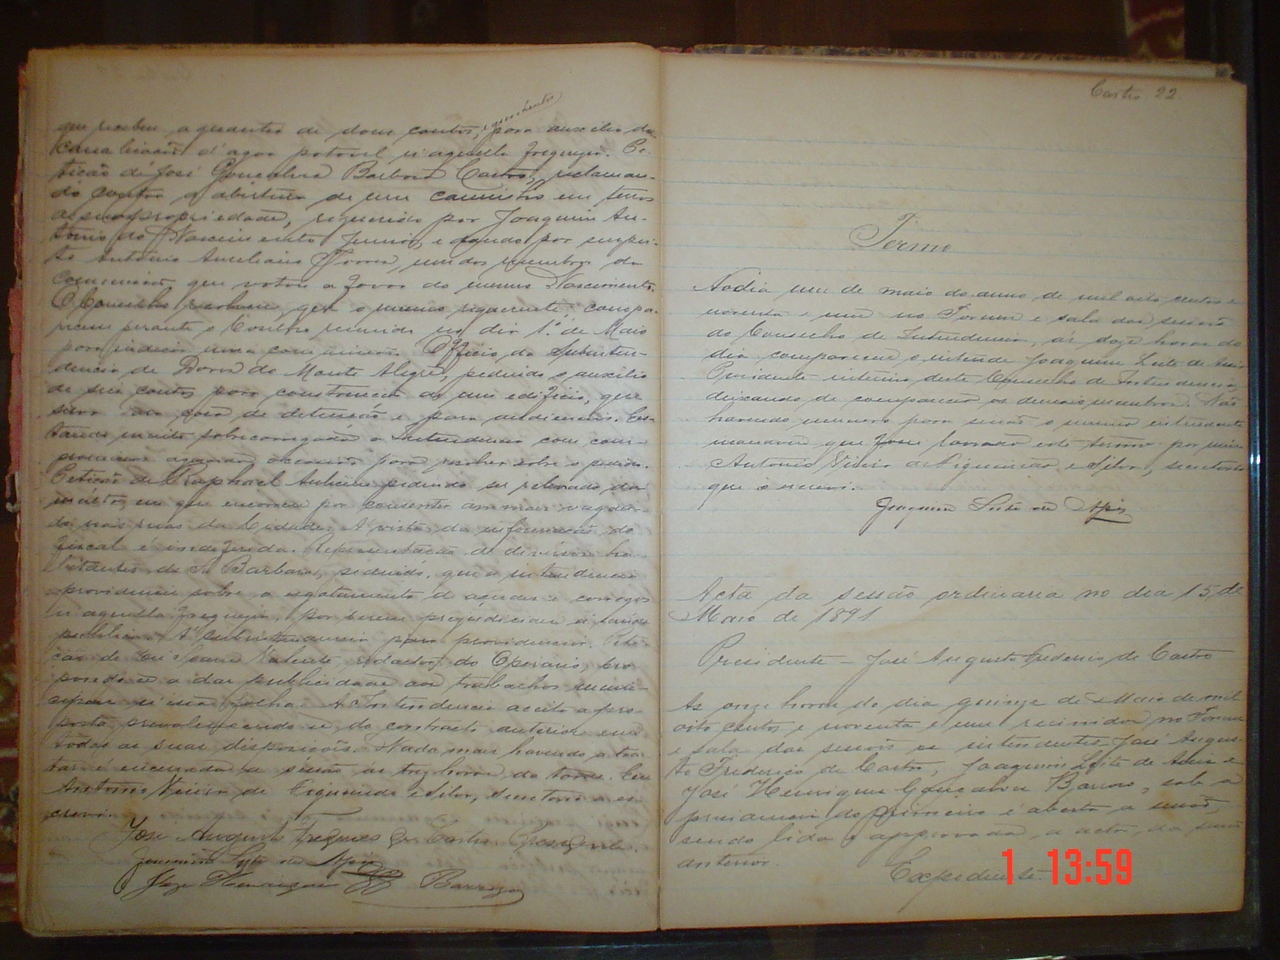 que recebeu a quantia de dous contos, e quinhentos para auxilio da
canalisação d'agoa potavel n'aquella freguezia. Pe-
tição de José Gonçalves Barbosa Castro, reclaman-
do contra a abertura de um caminho em terras
de sua propriedade, requerido por Joaquim An-
tonio do Nascimento Junior, e dando por suspei-
to Antonio Aureliano, um dos membros da
commissão, que votou a favor do mesmo Nascimento.
O Conselho resolveu, que o mesmo requerente compa-
recesse perante o Conselho reunido no dia 1º de Maio
para indicar uma commissão. Officio da Subinten-
dencia de Barra do Monte Alegre, pedindo o auxilio
de seis contos para construcção de um edificio, que
sirva de casa de detenção e para audiencias. Es-
tando muito sobrecarregada a Intendencia com com-
promissos aguarda para resolver sobre o pedido.
Petição de Raphael pedindo ser relevado da
multa em que encorreu por consentir animaes vagan-
do nas ruas da Cidade. A' vista da informação do
fiscal é indeferida. Representação de diversos ha-
bitantes de Sta Barbara, pedindo, que a intendencia
providencie sobre o esgotamento d'açudes e corregos
n'aquella freguezia, por serem prejudiciaes á saude
publica. A' subintendencia para providenciar. Peti-
ção de Valente, redactor do Operario, pro-
pondo-se a dar publicidade aos trabalhos munici-
paes n'essa folha. A Intendencia aceita a pro-
posta, prevalecendo-se do contracto anterior em
todas as suas disposições. Nada mais havendo a tra-
tar é encerrada a sessão ás tres horas da tarde. Eu
Antonio Vieira de Figueiredo e Silva, secretario o es-
crevi.
José Augusto Frederico de Castro Presidente.
Joaquim Leite de Assis
José Henrique G. Barroso
Castro 22
Termo
No dia um de maio do anno de mil oito centos e
noventa e um no Forum e sala das sessões
do Conselho de Intendencia, ás doze horas do
dia compareceu o intendente Joaquim Leite de Assis
Presidente interino deste Conselho de Intendencia,
deixando de comparecer os demais membros. Não
havendo numero para sessão o mesmo intendente
mandou que fosse lavrado este termo por mim
Antonio Vieira de Figueiredo e Silva, secretario
que o escrevi.
Joaquim Leite de Assis
Acta da sessão ordinaria no dia 15 de
Maio de 1891
Presidente - José Augusto Frederico de Castro
As onze horas do dia quinze de Maio de mil
oito centos e noventa e um reunidos no Forum
e sala das sessões os intendentes José Augus-
to Frederico de Castro, Joaquim Leite de Assis e
José Henrique Gonçalves Barroso, sob a
presidencia do primeiro é aberta a sessão,
sendo lida e approvada a acta da sessão
anterior.
Expediente.
1 13:59